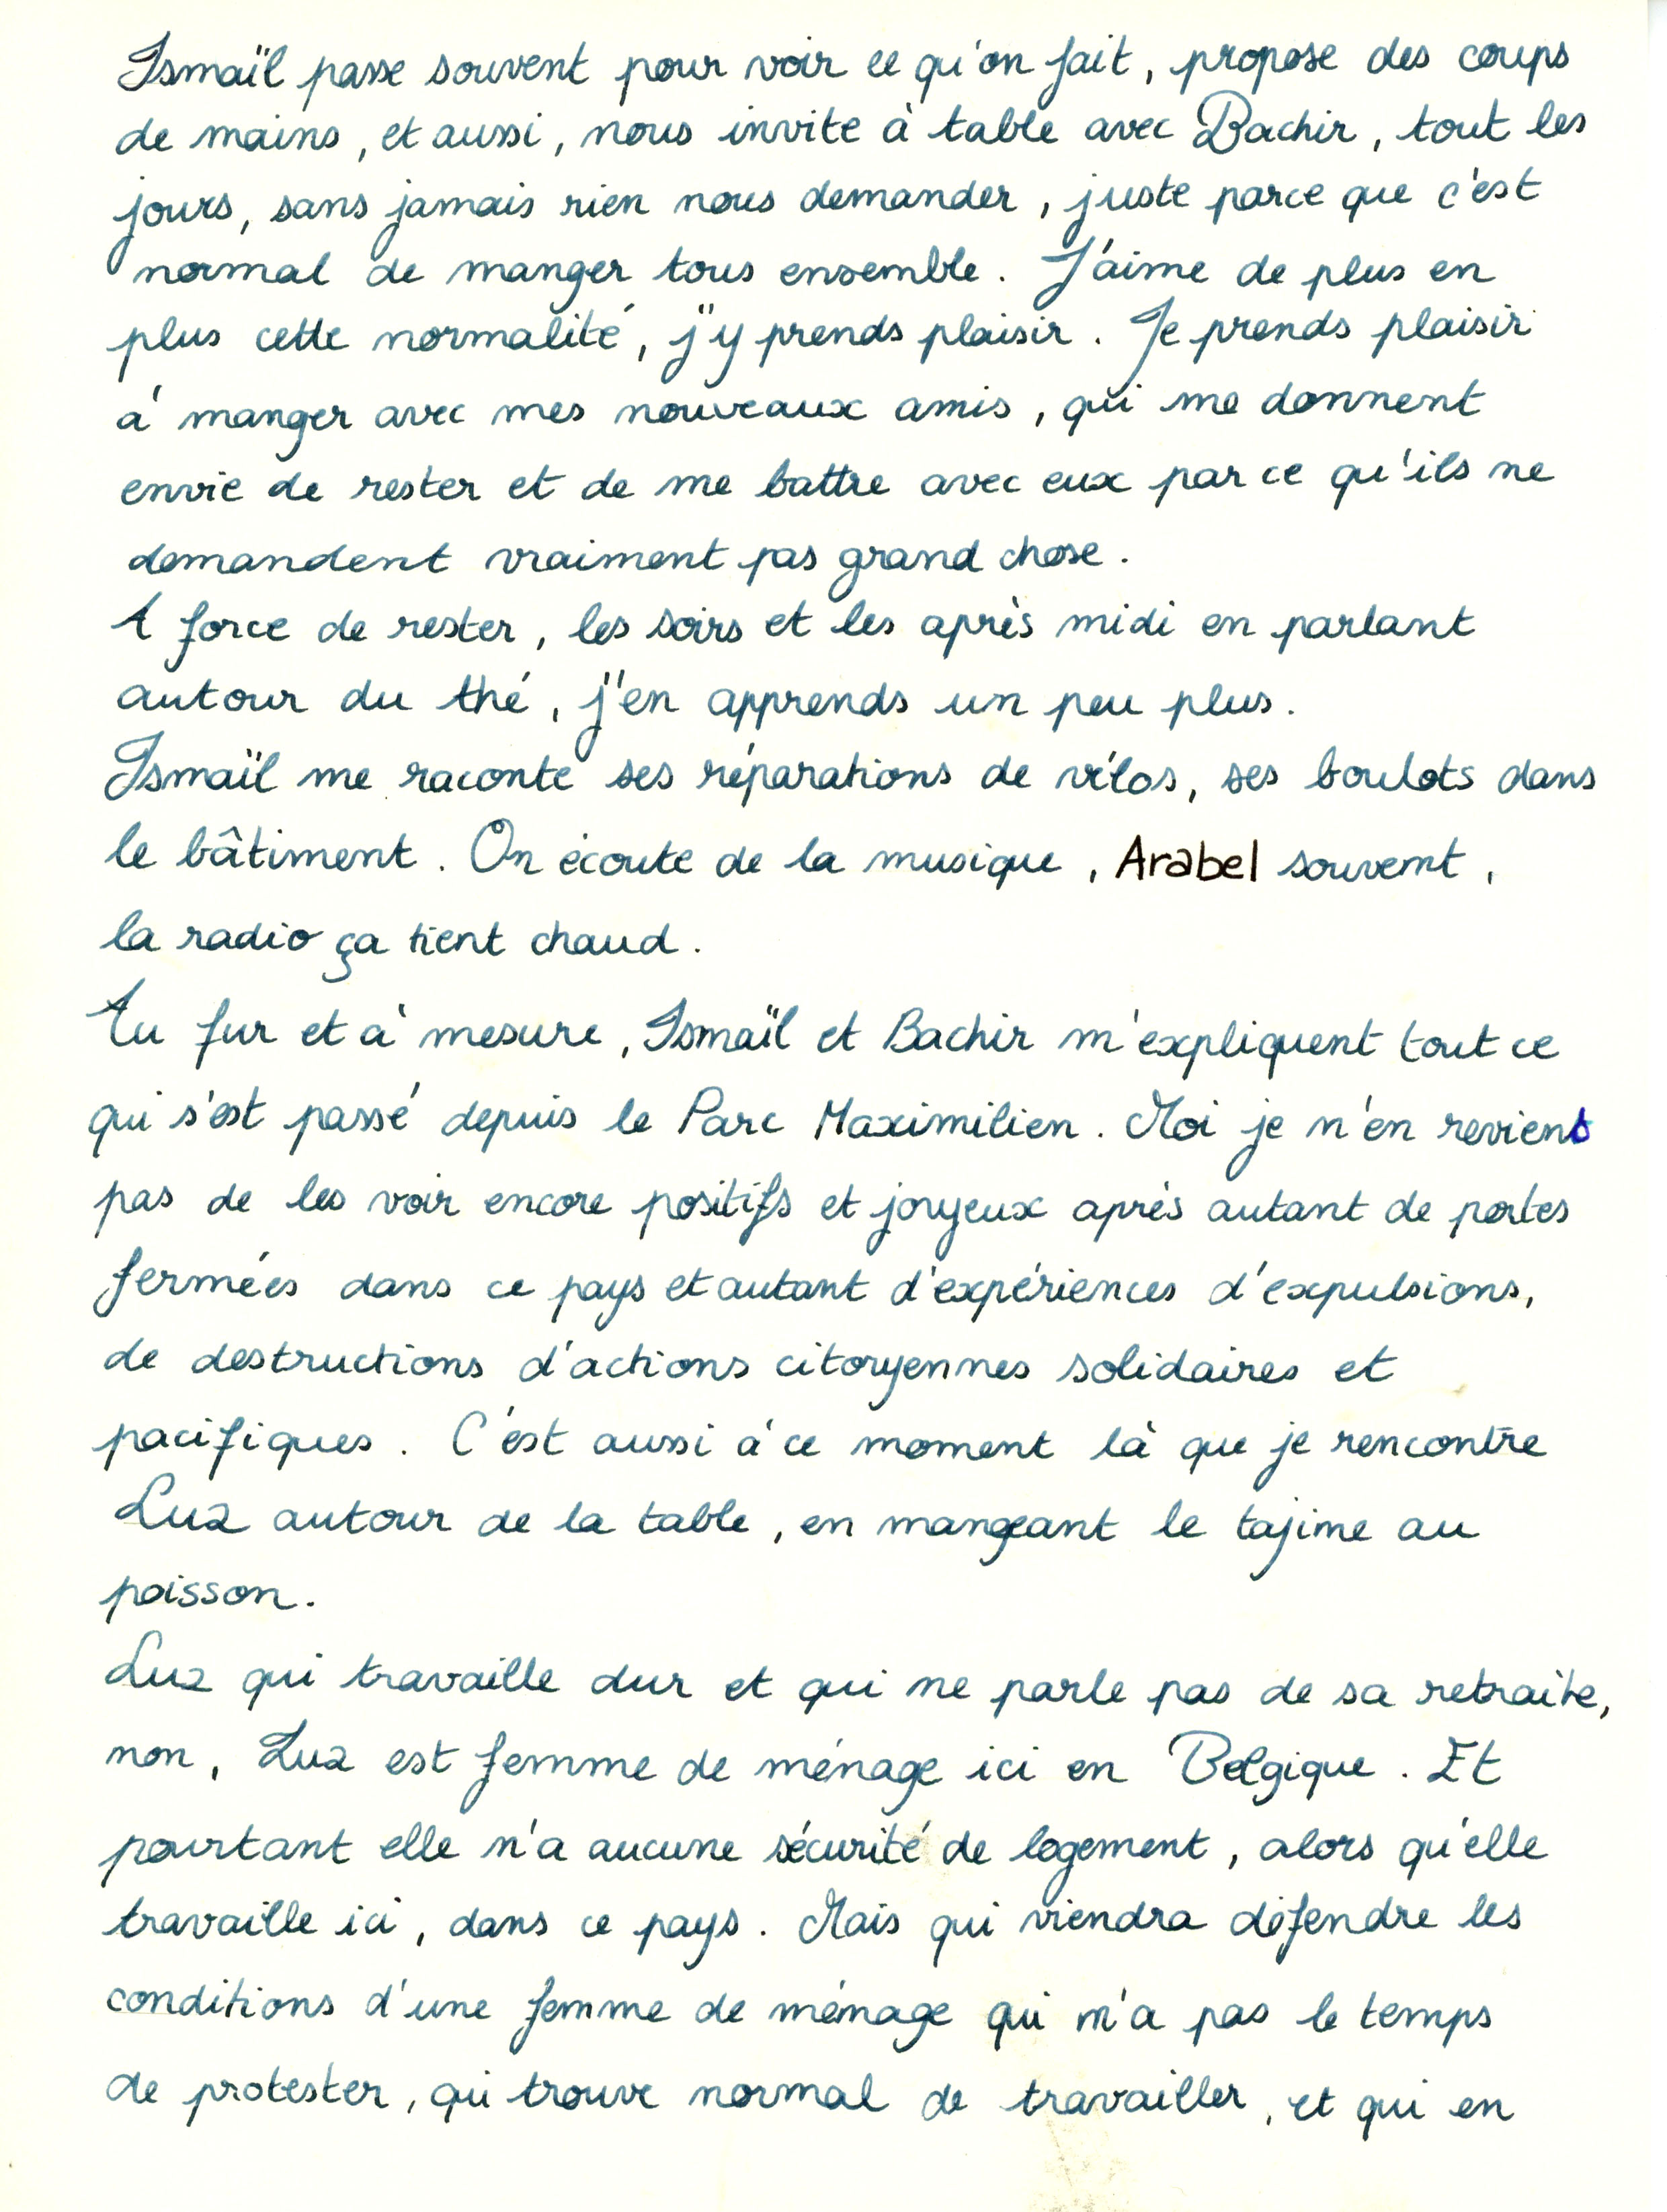 Ismaïl passe souvent pour voir ce qu'on fait, propose des coups
de mains, et aussi, nous invite à table avec Bachir, tout les
jours, sans jamais rien nous demander, juste parce que c'est
normal de manger tous ensemble. J'aime de plus en
plus cette normalité, j'y prends plaisir. Je prends plaisir
à manger avec mes nouveaux amis, qui me donnent
envie de rester et de me battre avec eux parce qu'ils ne
demandent vraiment pas grand chose.
A force de rester, les soirs et les après midi en parlant
autour du thé, j'en apprends un peu plus.
Ismaïl me raconte ses réparations de vélos, ses boulots dans
le bâtiment. On écoute de la musique, Arabel souvent,
la radio ça tient chaud.
Au fur et à mesure, Ismaïl et Bachir m'expliquent tout ce
qui s'est passé depuis le Parc Maximilien. Moi je n'en reviens
pas de les voir encore positifs et joyeux après autant de portes
fermées dans ce pays et autant d'expériences d'expulsions,
de destructions d'actions citoyennes solidaires et
pacifiques. C'est aussi à ce moment là que je rencontre
Luz autour de la table, en mangeant le tajine au
poisson.
Luz qui travaille dur et qui ne parle pas de sa retraite,
non, Luz est femme de ménage ici en Belgique. Et
pourtant elle n'a aucune sécurité de logement, alors qu'elle
travaille ici, dans ce pays. Mais qui viendra défendre les
conditions d'une femme de ménage qui n'a pas le temps
de protester, qui trouve normal de travailler, et qui en